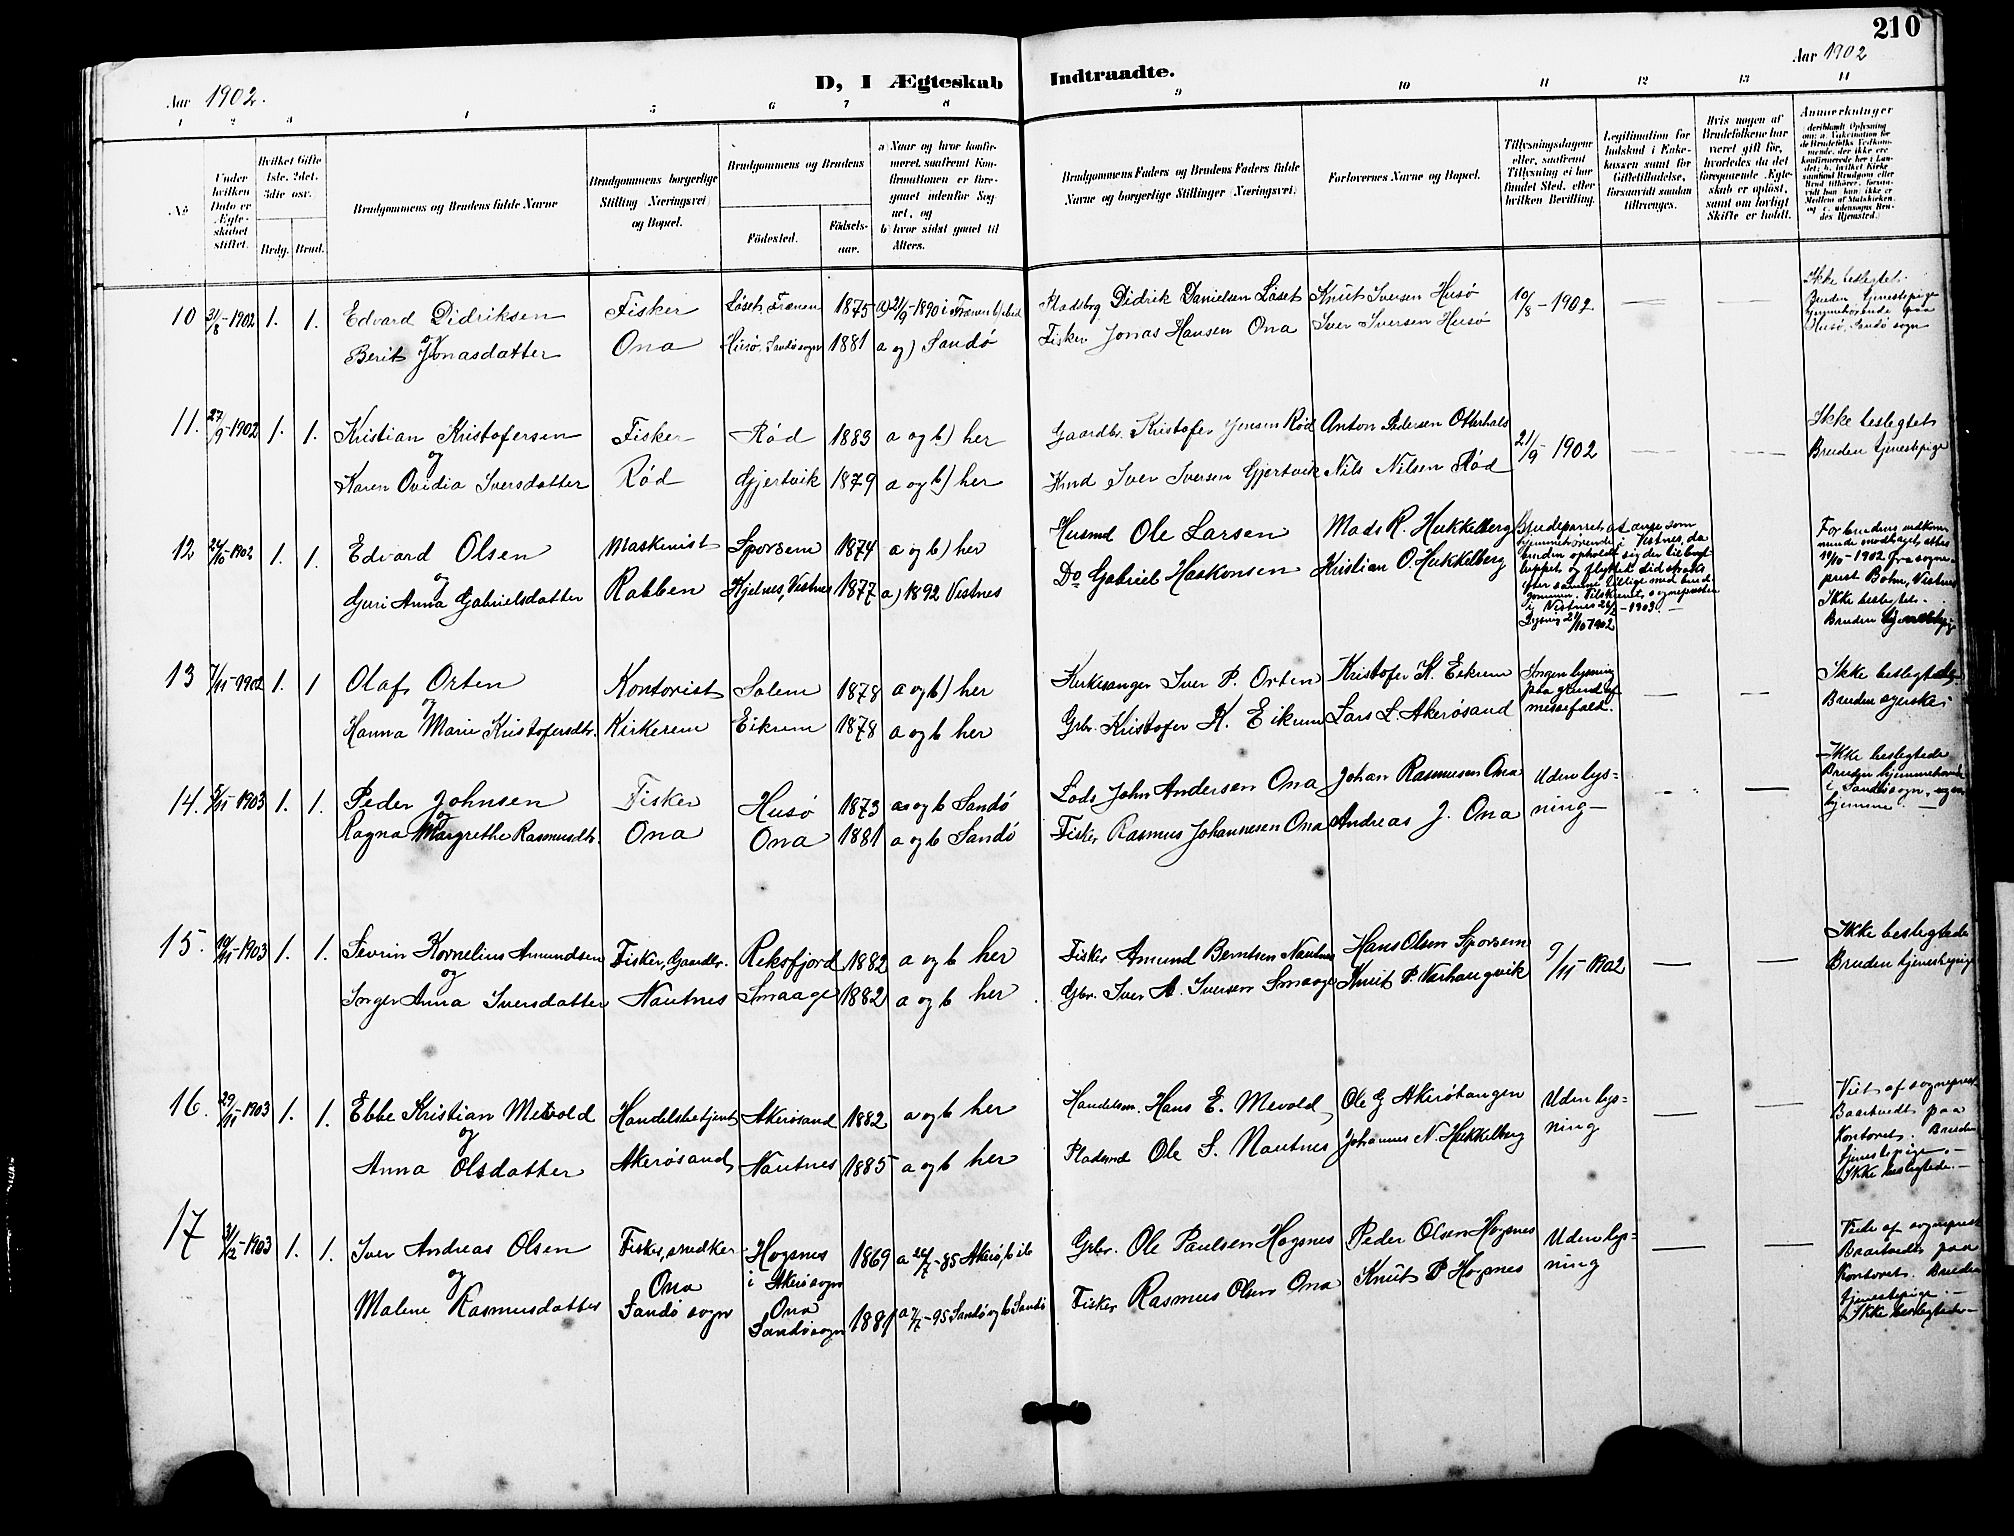 210
Aar 1902. D, I Ægteskab Indtraadte. Aar 1902
1 2 3 4 5 6 7 8 9 10 11 12 13 14
No.
Under hvilken Dato er Ægteskabet stiftet.
Hvilket Gifte 1ste, 2det, 3die osv.
Brdg. Brud.
Brudgommens og Brudens fulde Navne
Brudgommens borgerlige Stilling (Næringsvei) og Bopæl.
Brudgommens og Brudens
Fødested. Fødselsaar.
a Naar og hvor konfirmeret, saafremt Konfirmationen er foregaaet udenfor Sognet, og
b hvor sidst gaaet til Alters.
Brudgommens Faders og Brudens Faders fulde Navne og borgerlige Stillinger (Næringsvei)
Forlovernes Navne og Bopæl.
Tillysningsdagene eller, saafremt Tillysning ei har fundet Sted, efter hvilken Bevilling.
Legitimation for Indskud i Enkekassen samt for Giftetilladelse, forsaavidt saadan tiltrænges.
Hvis nogen af Brudefolkene har været gift før, hvorledes da det foregaaende Ægteskab er opløst, samt om lovligt Skifte er holdt.
Anmerkninger
10 31/8-1902 1. 1. Edvard Didriksen Fisker Løset, Frænen 1875 a) 21/9-1890 i Frænen Pladsbrg Didrik Danielsen Løset Knut Iversen Husö 10/8-1902 — — Ikke beslegtet.
og
Berit Jonasdatter Ona Husö, Sandö sogn 1881 a og) Sandö Fisker Jonas Hansen Ona Iver Iversen Husö Bruden tjenestepige hjemmehörende paa Husö, Sandö sogn
11. 27/9-1902 1. 1. Kristian Kristofersen Fisker Rød 1883 a og b) her Gaardbr. Kristofer Jensen Rød Anton Pedersen Otterhals 21/9-1902 — — Ikke beslegtet
og
Karen Ovidia Iversdatter Rød Gjertvik 1879 a og b) her Iver Iversen Gjertvik Nils Nilsen Rød Bruden tjenestepige
12 1902 1. 1. Edvard Olsen Maskinist Sporsem 1874 a og b) her Husmd Ole Larsen Mads R. Hukkelberg Brudeparret at anse som hjemmehörende i Vestnes, da bruden opholdt sig der til bryllupet og flyttet did straks efter samme tillige med brudgommen.
og
Guri Anna Gabrielsdatter Rabben Hjelnes, Vestnes 1877 a) 1892 Vestnes Do Gabriel Haakonsen Kristian O. Hukkelberg i Vestnes 1903.
1902
fra sogneprest Bohn, Vestnes
Ikke beslegtet.
Bruden hjemmepige
13 7/11-1902 1. 1 Olaf Orten Kontorist Solem 1878 a og b) her Kirkesanger Iver P. Orten Kristofer K. Eikrem Ingen lysning — — Ikke beslegtede
og
Hanna Marie Kristofersdtr. Kirkerem Eikrem 1878 a og b her Grbr. Kristofer K. Eikrem Lars L. Akerøsand paa grund af messefald. Bruden syerske
14. 5/11-1903 1. 1. Peder Johnsen Fisker Husö 1873 a og b Sandö Lods John Andersen Ona Johan Rasmussen Ona Uden lys= — — Ikke beslegtede
og
Ragna Margrethe Rasmusdtr. Ona Ona 1881 a og b Sandö Fisker Rasmus Johannesen Ona Andreas J. Ona ning— Bruden hjemmehörende i Sandö sogn,
hjemme. —
15. 19/11-1903 1. 1. Sevrin Kornelius Amundsen Fisker, Gaardbr. Reksfjord 1882 a og b her Fisker Amund Berntsen Nautnes Hans Olsen Sporsem 9/11-1902 — — Ikke beslegtede
og
Inger Anna Iversdatter Nautnes Smaage 1882 a og b her Gbr. Iver A. Iversen Smaage Knut P. Varhaugvik Bruden tjenestepige
16. 29/11-1903 1. 1. Ebbe Kristian Mevold Handelsbetjent Akerøsand 1882 a og b her Handelsm. Hans E. Mevold, Ole G Akerøtangen Uden lys= — — Viet af sogneprest
og
Anna Olsdatter Akerøsand Nautnes 1885 a og b her Pladsmd Ole S. Nautnes Johannes N. Hukkelberg ning Baartvedt paa kontoret. Bruden tjenestepige. —
Ikke beslegtede. —
17 1903 1. 1. Iver Andreas Olsen Fisker, snedker Hogsnes 1869 85 Akerö, b ib Grbr. Ole Paulsen Hogsnes Peder Olsen Hogsnes Uden lys= — — Viede af sogneprest
og Ona i Akerö sogn
Malene Rasmusdatter Sandö sogn Ona Sandö sogn 1881 95 Sandö og b Sandö Fisker Rasmus Olsen Ona Knut P Hogsnes ning Baartvedt paa kontoret. Bruden tjenestepige. —
Ikke beslegtede. —